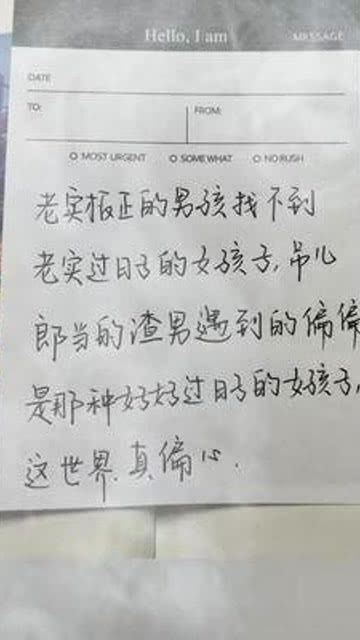 Hello, I am
MESSAGE
DATE
TO:
FROM:
MOST URGENT
SOMEWHAT
NO RUSH
老实板正的男孩找不到
老实过日子的女孩子,吊儿
郎当的渣男遇到的偏偏
是那种好好过日子的女孩子,
这世界真偏心.